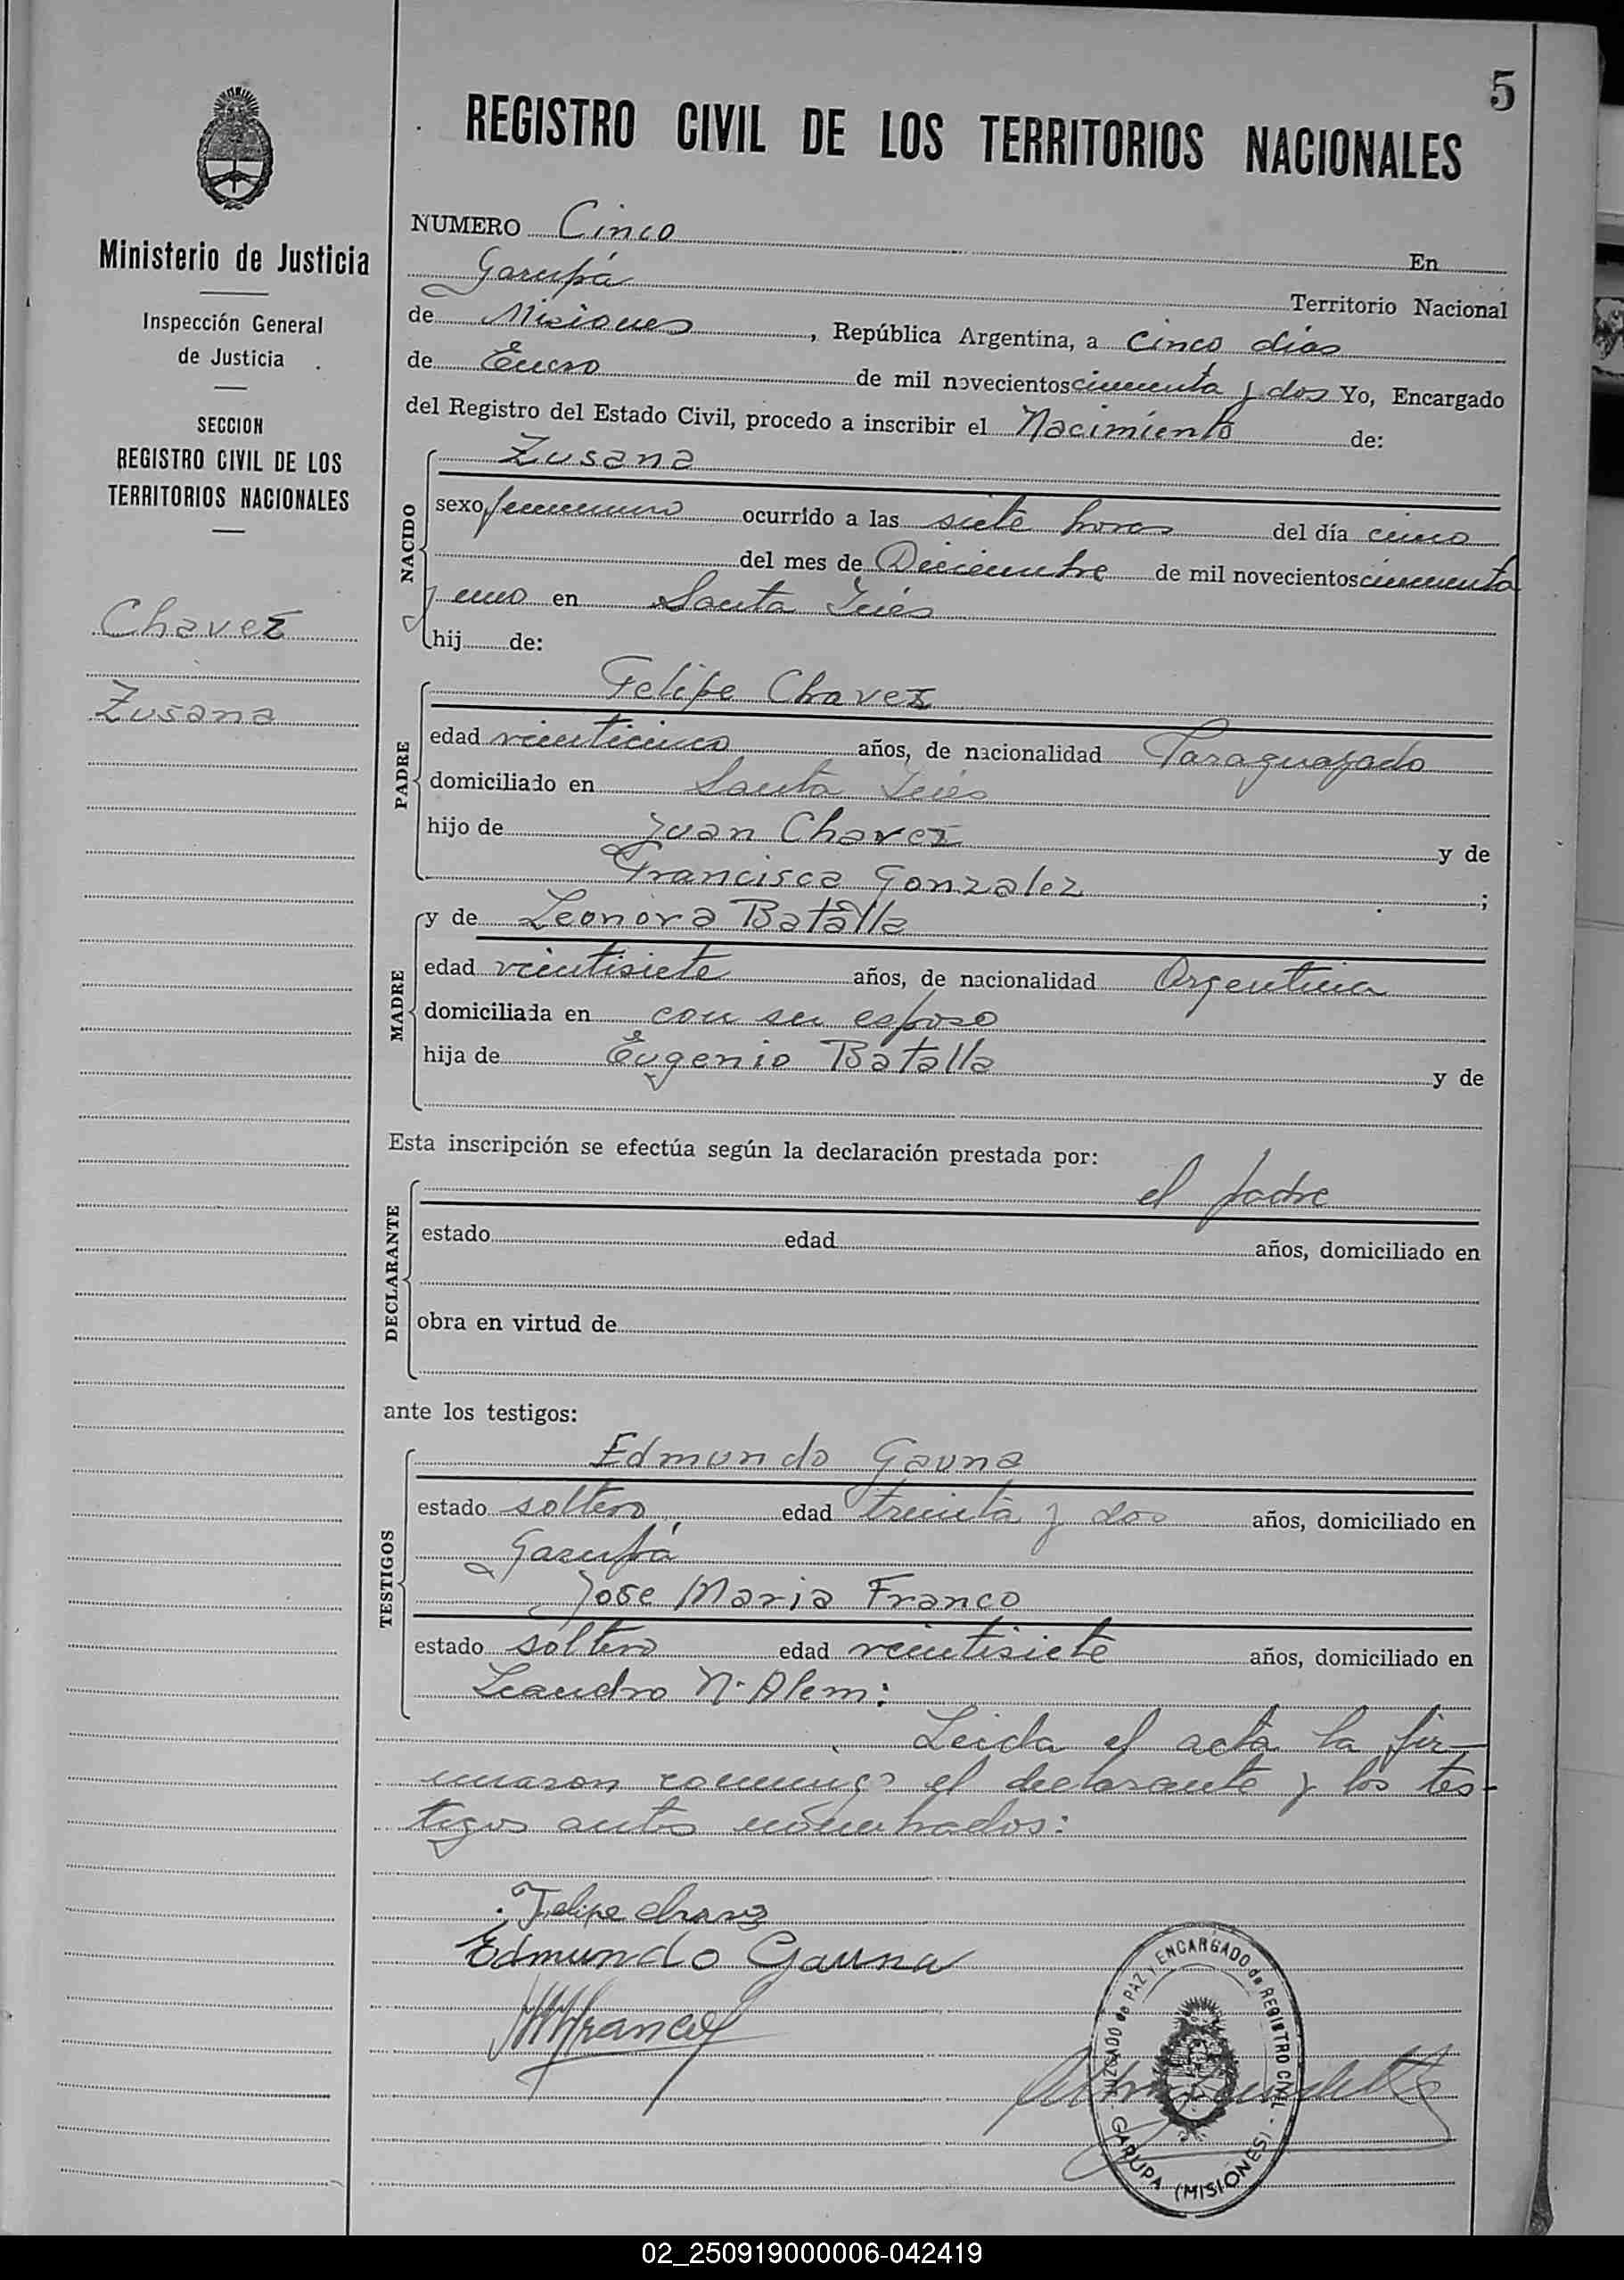 5
REGISTRO CIVIL DE LOS TERRITORIOS NACIONALES
Ministerio de Justicia
Inspección General
de Justicia
SECCION
REGISTRO CIVIL DE LOS
TERRITORIOS NACIONALES
Chavez
Zusana
NUMERO Cinco En
Garupá Territorio Nacional
de Misiones, República Argentina, a cinco dias
de Enero de mil novecientos cincuenta y dos Yo, Encargado
del Registro del Estado Civil, procedo a inscribir el Nacimiento de:
NACIDO
Zusana
sexo femenino ocurrido a las siete horas del día cinco
del mes de Diciembre de mil novecientos cincuenta
y uno en Santa Inés
hij de:
PADRE
Felipe Chavez
edad veinticinco años, de nacionalidad Paraguayado
domiciliado en Santa Inés
hijo de Juan Chavez y de
Francisca Gonzalez ;
MADRE
y de Leonora Batalla
edad veintisiete años, de nacionalidad Argentina
domiciliada en con su esposo
hija de Eugenio Batalla y de
Esta inscripción se efectúa según la declaración prestada por:
DECLARANTE
el padre
estado edad años, domiciliado en
obra en virtud de
ante los testigos:
TESTIGOS
Edmundo Gauna
estado soltero edad treinta y dos años, domiciliado en
Garupá
Jose Maria Franco
estado soltero edad veintisiete años, domiciliado en
Leandro N. Alem:
Leida el acta la fir-
maron conmigo el declarante y los tes-
tigos antes nombrados:
Felipe chavez
Edmundo Gauna
JMFranco
JUZGADO de PAZ Y ENCARGADO de REGISTRO CIVIL
GARUPA (MISIONES)
02_250919000006-042419